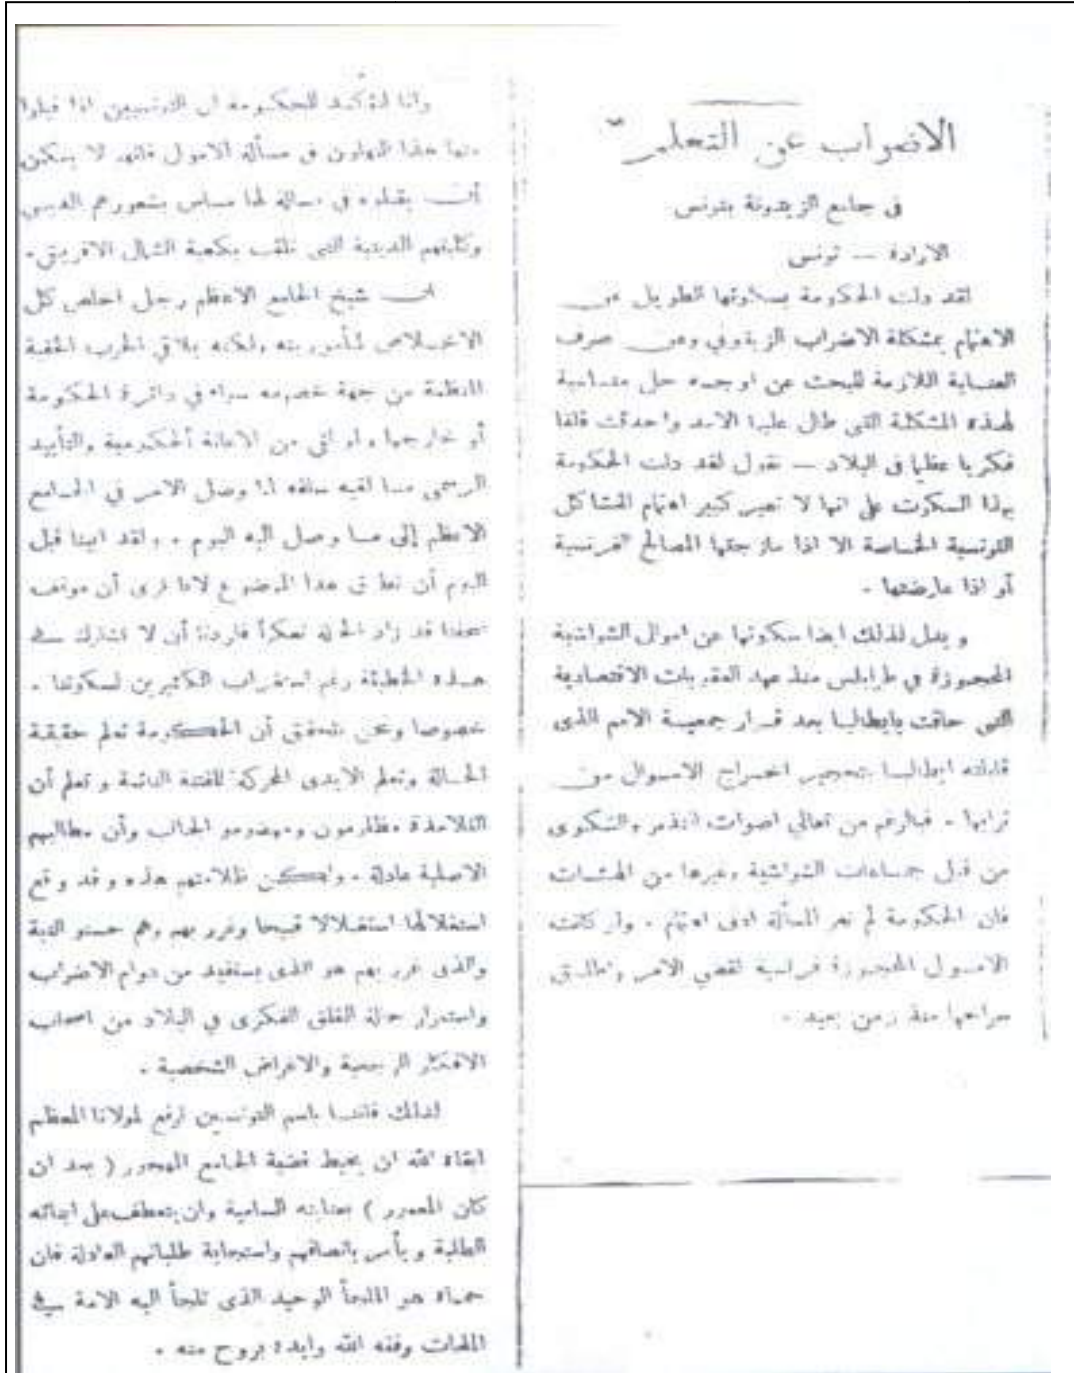 الاضراب عن التعليم
في جامع الزيتونة بتونس
الارادة — تونس
لقد دلت الحكومة بسكوتها الطويل عن
الاهتمام بمشكلة الاضراب الزيتوني وعن صرف
العناية اللازمة للبحث عن اوجه حل مناسبة
لهذه المشكلة التي طال عليها الامد واحدثت قلقا
فكريا عظيما في البلاد — نقول لقد دلت الحكومة
بهذا السكوت على انها لا تعير كبير اهتمام المشاكل
التونسية الخاصة الا اذا مازجتها المصالح الفرنسية
أو اذا عارضتها .
و يدل لذلك ايضا سكوتها عن اموال الشواشية
المحجوزة في طرابلس منذ عهد العقوبات الاقتصادية
التي حاقت بايطاليا بعد قرار جمعية الامم الذي
قابلته ايطاليا بتحجير اخراج الاموال من
ترابها . فبالرغم من تعالي اصوات التذمر والشكوى
من قبل جماعات الشواشية وغيرها من الهيئات
فان الحكومة لم تعر المسألة ادنى اهتمام . ولو كانت
الاموال المحجوزة فرنسية لقضي الامر واطلق
سراحها منذ زمن بعيد .
وانا لنؤكد للحكومة ان التونسيين اذا قبلوا
منها هذا التهاون في مسألة الاموال فانهم لا يمكن
أن يقبلوه في مسألة لها مساس بشعورهم الديني
وكليتهم الدينية التي تلقب بكعبة الشمال الافريقي .
ان شيخ الجامع الاعظم رجل اخلص كل
الاخلاص لمأموريته ولكنه يلاقي الحرب الخفية
المنظمة من جهة خصومه سواء في دائرة الحكومة
أو خارجها ولو لقي من الاعانة الحكومية والتأييد
الرسمي ما لقيه سلفه لما وصل الامر في الجامع
الاعظم إلى ما وصل اليه اليوم . ولقد ابينا قبل
اليوم أن نطرق هذا الموضوع لانا نرى أن موقف
صحفنا قد زاد الحالة تعكرا فاردنا أن لا نشارك في
هذه الخطيئة رغم استغراب الكثيرين لسكوتنا .
خصوصا ونحن نتحقق أن الحكومة تعلم حقيقة
الحالة وتعلم الايدى المحركة للفتنة النائمة و تعلم أن
التلامذة مظلومون ومهضومو الجانب وأن مطالبهم
الاصلية عادلة . ولكن ظلامتهم هذه و قد وقع
استغلالها استغلالا قبيحا وغرر بهم وهم حسنو النية
والذى غرر بهم هو الذى يستفيد من دوام الاضراب
واستمرار حالة القلق الفكرى في البلاد من اصحاب
الافكار الرجعية والاغراض الشخصية .
لذلك فاننا باسم التونسيين نرفع لمولانا المعظم
ابقاه الله ان يحيط قضية الجامع المهجور ( بعد ان
كان المعمور ) بعنايته السامية وان يتعطف على ابنائه
الطلبة و يأمر بانصافهم واستجابة طلباتهم العادلة فان
حماه هو الملجأ الوحيد الذى تلجأ اليه الامة في
الملمات وفقه الله وايده بروح منه .